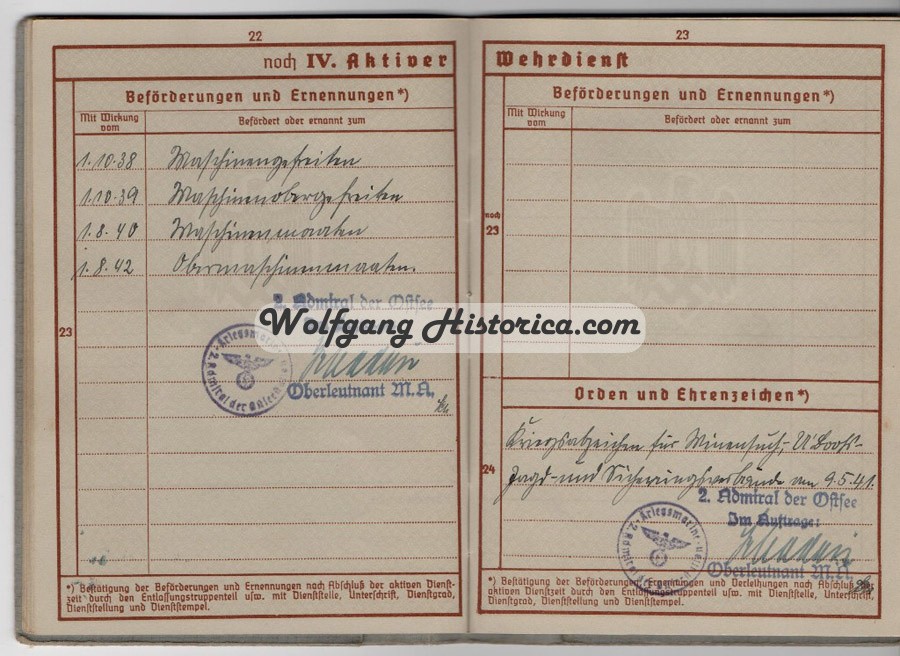 22
noch IV. Aktiver
Beförderungen und Ernennungen*)
Mit Wirkung vom
Befördert oder ernannt zum
1.10.38 Maschinengefreiten
1.10.39 Maschinenobergefreiten
1.8.40 Maschinenmaaten
1.8.42 Obermaschinenmaaten.
2. Admiral der Ostsee
23
Wolfgang Historica.com
Kriegsmarine
2. Admiral der Ostsee
Oberleutnant M.A.
*) Bestätigung der Beförderungen und Ernennungen nach Abschluß der aktiven Dienst-
zeit durch den Entlassungstruppenteil usw. mit Dienststelle, Unterschrift, Dienstgrad,
Dienststellung und Dienststempel.
23
Wehrdienst
Beförderungen und Ernennungen*)
Mit Wirkung vom
Befördert oder ernannt zum
noch
23
Orden und Ehrenzeichen*)
Kriegsabzeichen für Minensuch-, U Boots-
24
Jagd- und Sicherungsverbände am 9.5.41.
2. Admiral der Ostsee
Im Auftrage:
Kriegsmarine
2. Admiral
Oberleutnant M.A.
*) Bestätigung der Beförderungen, Ernennungen und Verleihungen nach Abschluß der
aktiven Dienstzeit durch den Entlassungstruppenteil usw. mit Dienststelle, Unterschrift,
Dienstgrad, Dienststellung und Dienststempel.